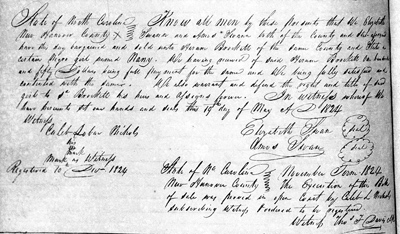 State of North Carolina Know all men by these Presents that We Elizabeth
New Hanover County Swann and Amos Swann both of the County and State aforesaid
have this day bargained and sold unto of the same County and State a
certain Negro girl named Nancy. We having received of said hundred
and fifty Dollars being full payment for the same and We being fully satisfied and
contented with the same. We also warrant and defend the right and title of said
girl to sd his heirs and assigns forever. In witness whereof We
have hereunto set our hands and seals this 19th day of May AD 1824
Witness Elizabeth Swann seal
Caleb Nichols Amos Swann seal
his
Mark as Witness
Registered 10 Decr 1824 State of No Carolina November Term 1824
New Hanover County The Execution of this Bill
of sale was proved in open Court by Caleb Nichols
subscribing Witness Ordered to be registered
Witness Thos F Davis Clk